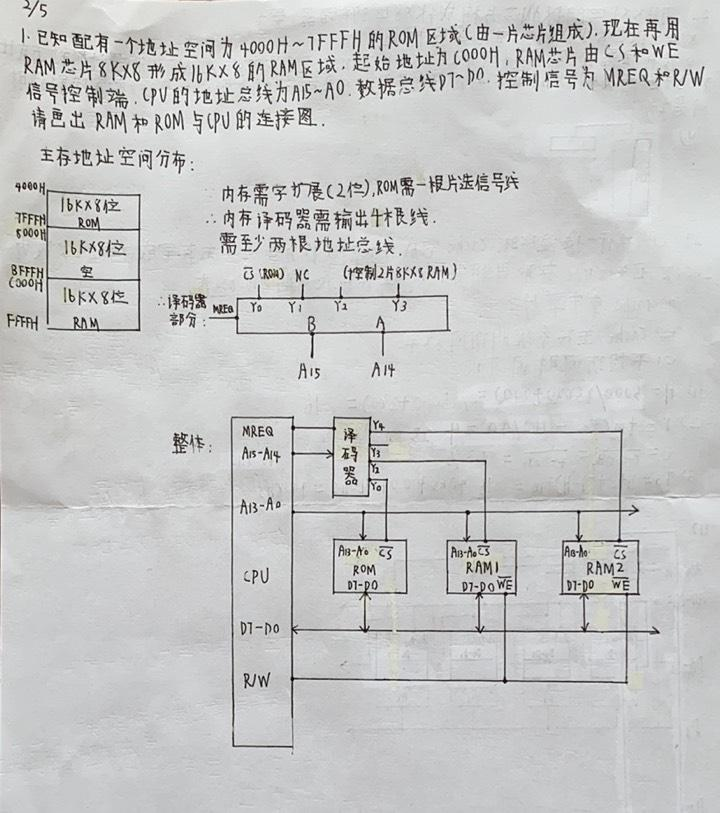 2/5
1. 已知配有一个地址空间为4000H~7FFFH的ROM区域(由一片芯片组成). 现在再用
RAM芯片8KX8形成16KX8的RAM区域. 起始地址为C000H, RAM芯片由CS和WE
信号控制端. CPU的地址总线为A15~A0. 数据总线D7~D0. 控制信号为MREQ和R/W
请画出RAM和ROM与CPU的连接图.
主存地址空间分布:
4000H
16KX8位
ROM
7FFFH
8000H
16KX8位
空
BFFFH
C000H
16KX8位
RAM
FFFFH
∵内存需字扩展(2位), ROM需一根片选信号线
∴内存译码器需输出4根线.
需至少两根地址总线.
(ROM) NC (控制2片8KX8 RAM)
∴译码器
部分:
MREQ
Y0 Y1 Y2 Y3
B A
A15 A14
整体:
MREQ
A15-A14
A13-A0
CPU
D7-D0
R/W
译码器
Y4
Y3
Y2
Y0
A13-A0 CS
ROM
D7-D0
A13-A0 CS
RAM1
D7-D0 WE
A13-A0 CS
RAM2
D7-D0 WE